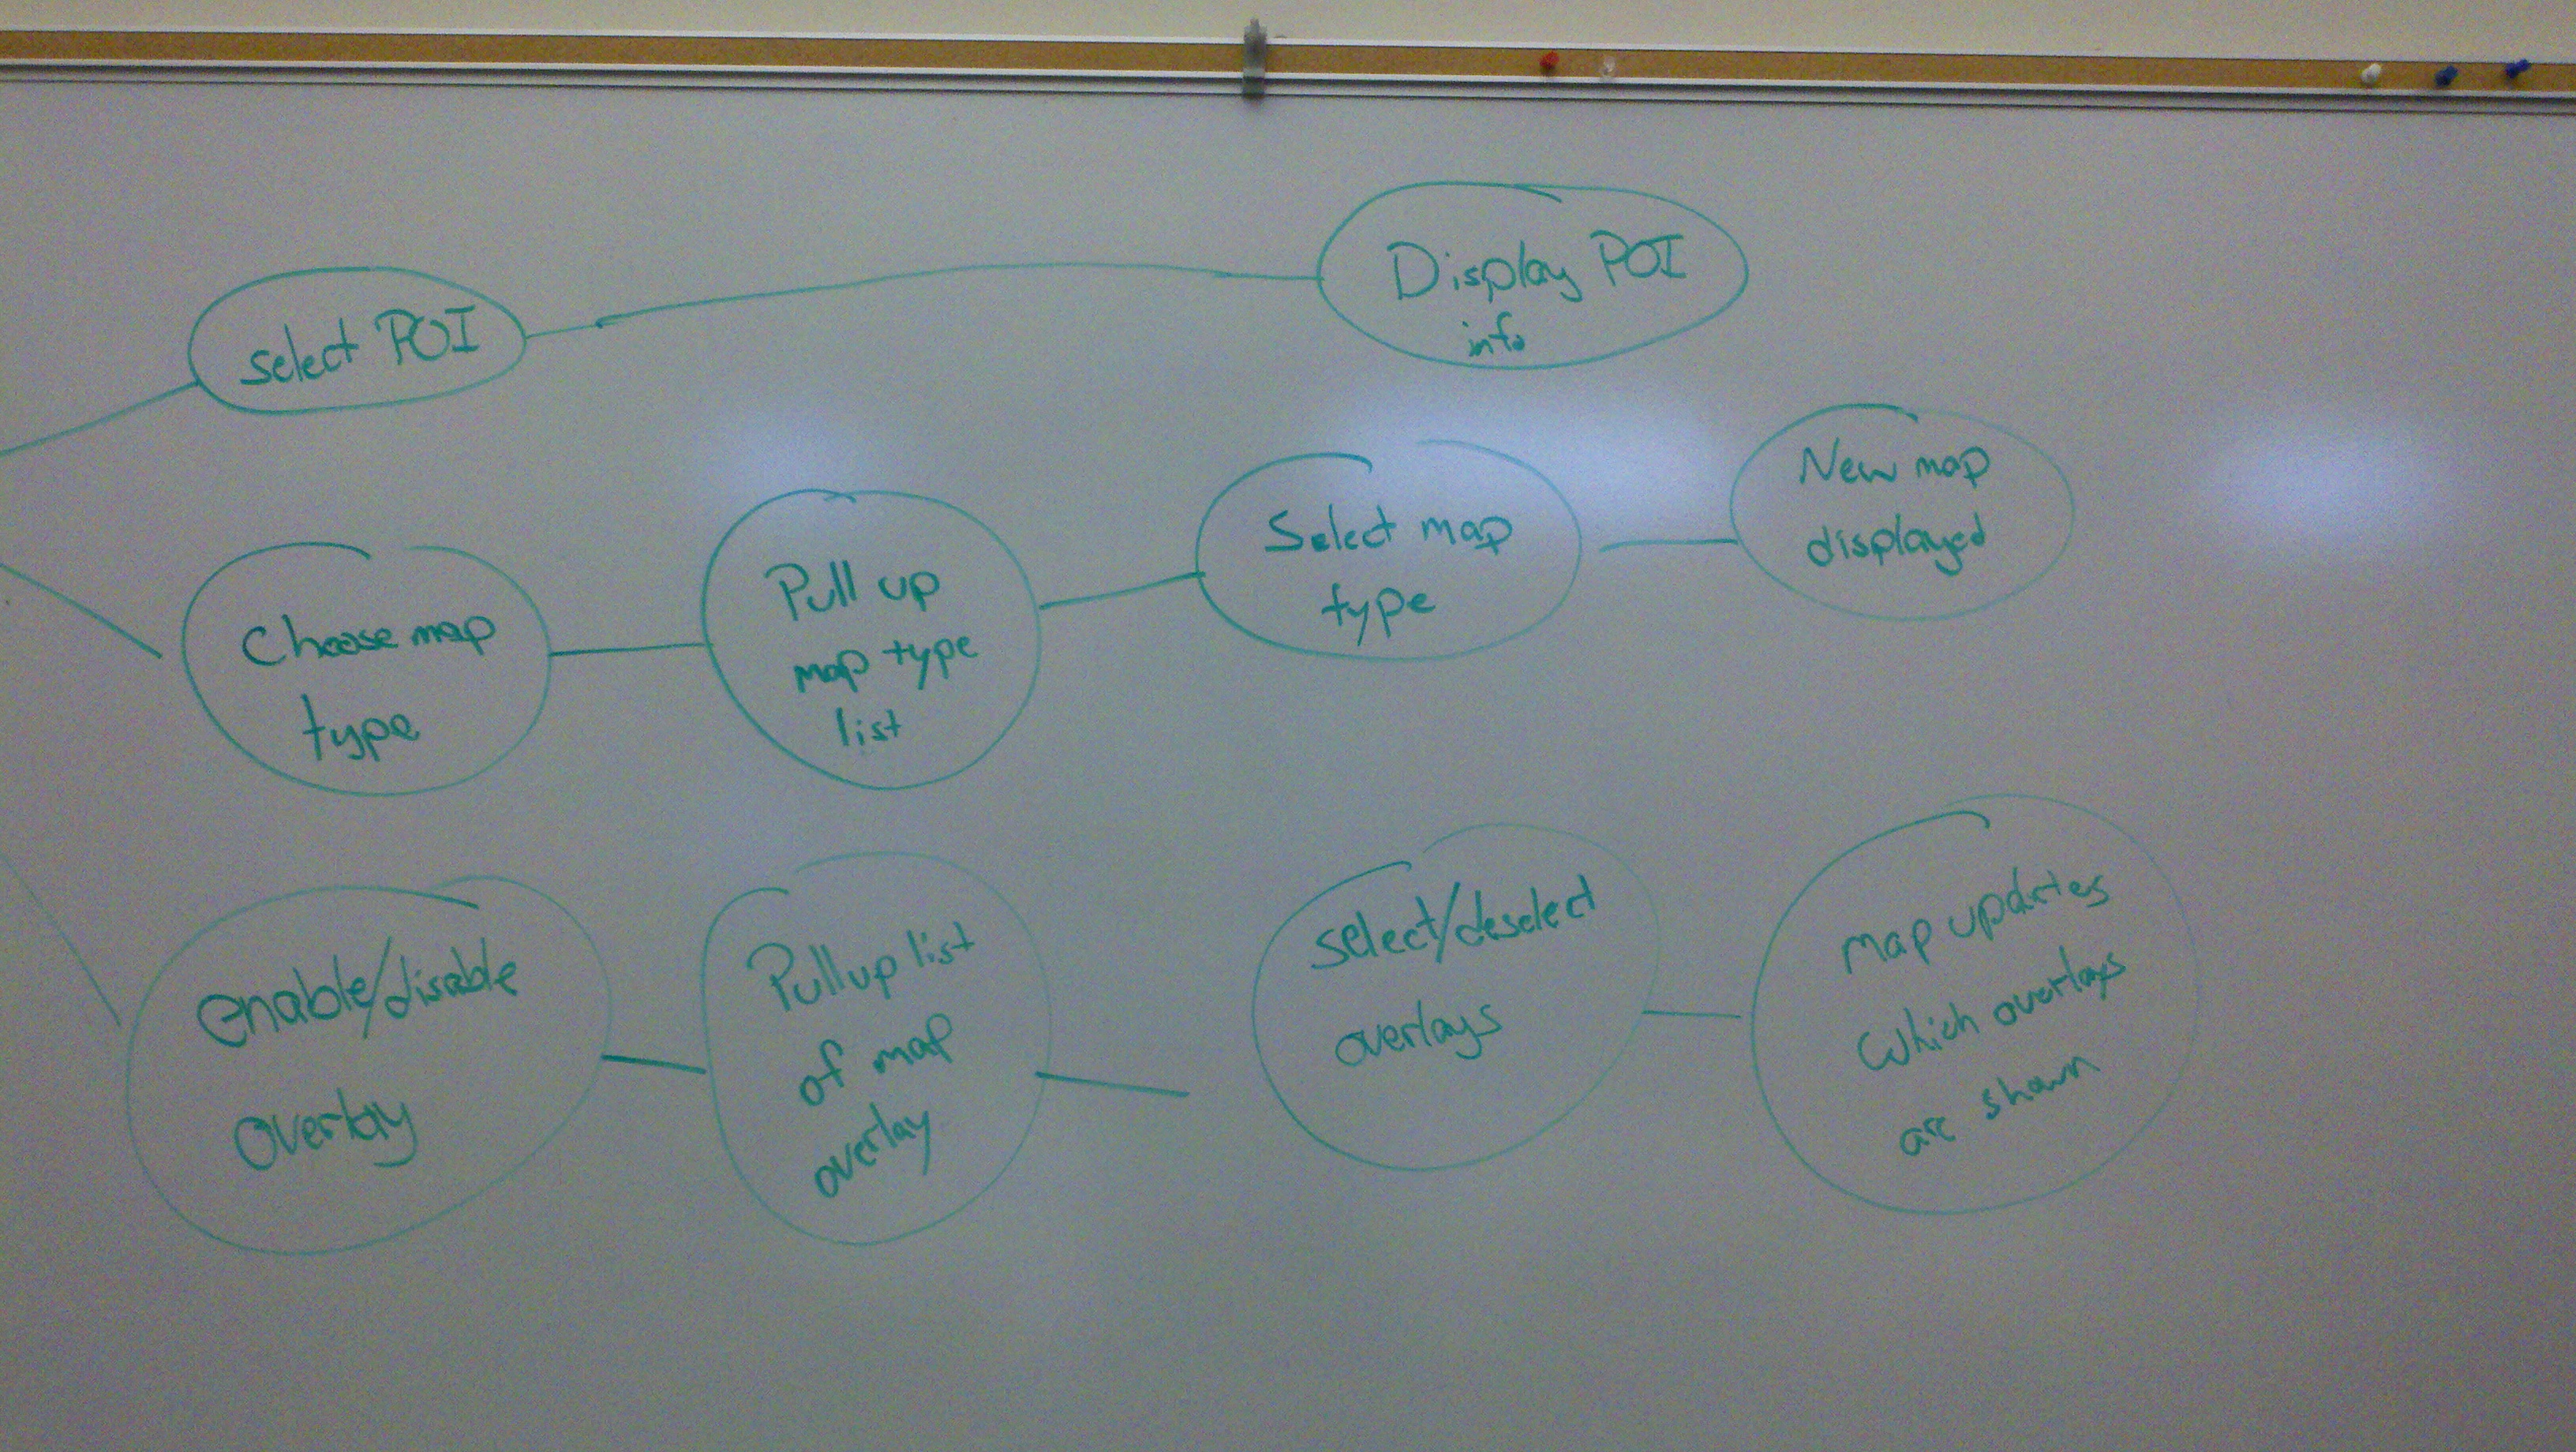 select POI
Display POI
info
Choose map
type
Pull up
map type
list
Select map
type
New map
displayed
enable/disable
overlay
Pull up list
of map
overlay
select/deselect
overlays
map updates
which overlays
are shown